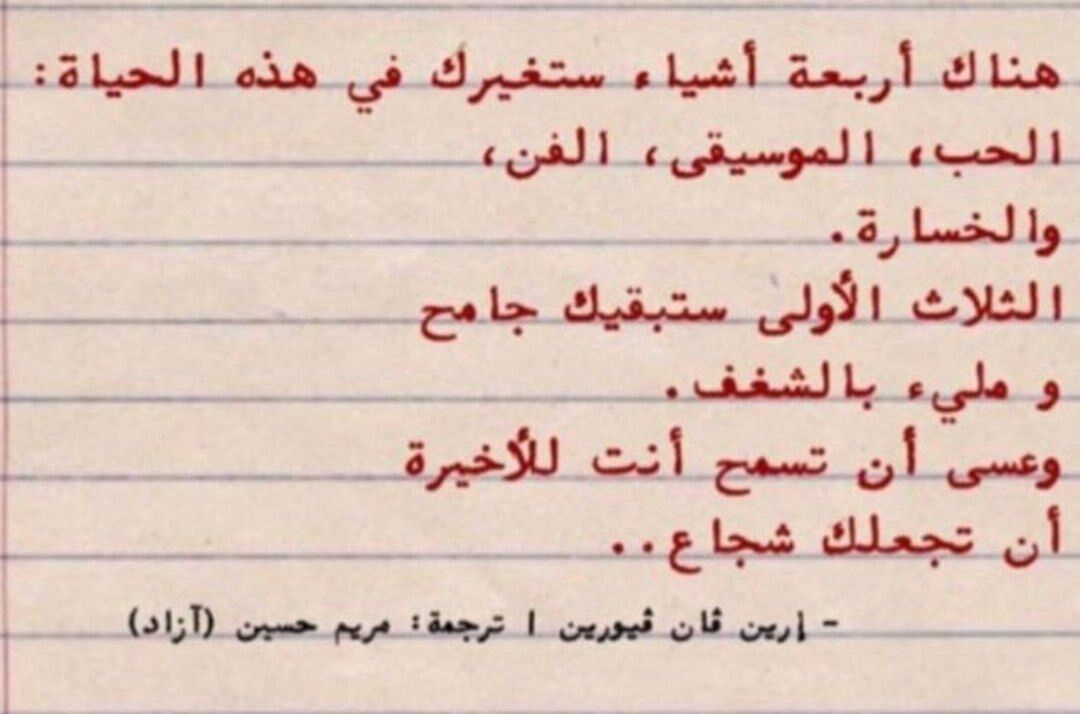 هناك أربعة أشياء ستغيرك في هذه الحياة:
الحب، الموسيقى، الفن،
والخسارة.
الثلاث الأولى ستبقيك جامح
و مليء بالشغف.
وعسى أن تسمح أنت للأخيرة
أن تجعلك شجاع..
- إرين ڤان ڤيورين | ترجمة: مريم حسين (آزاد)